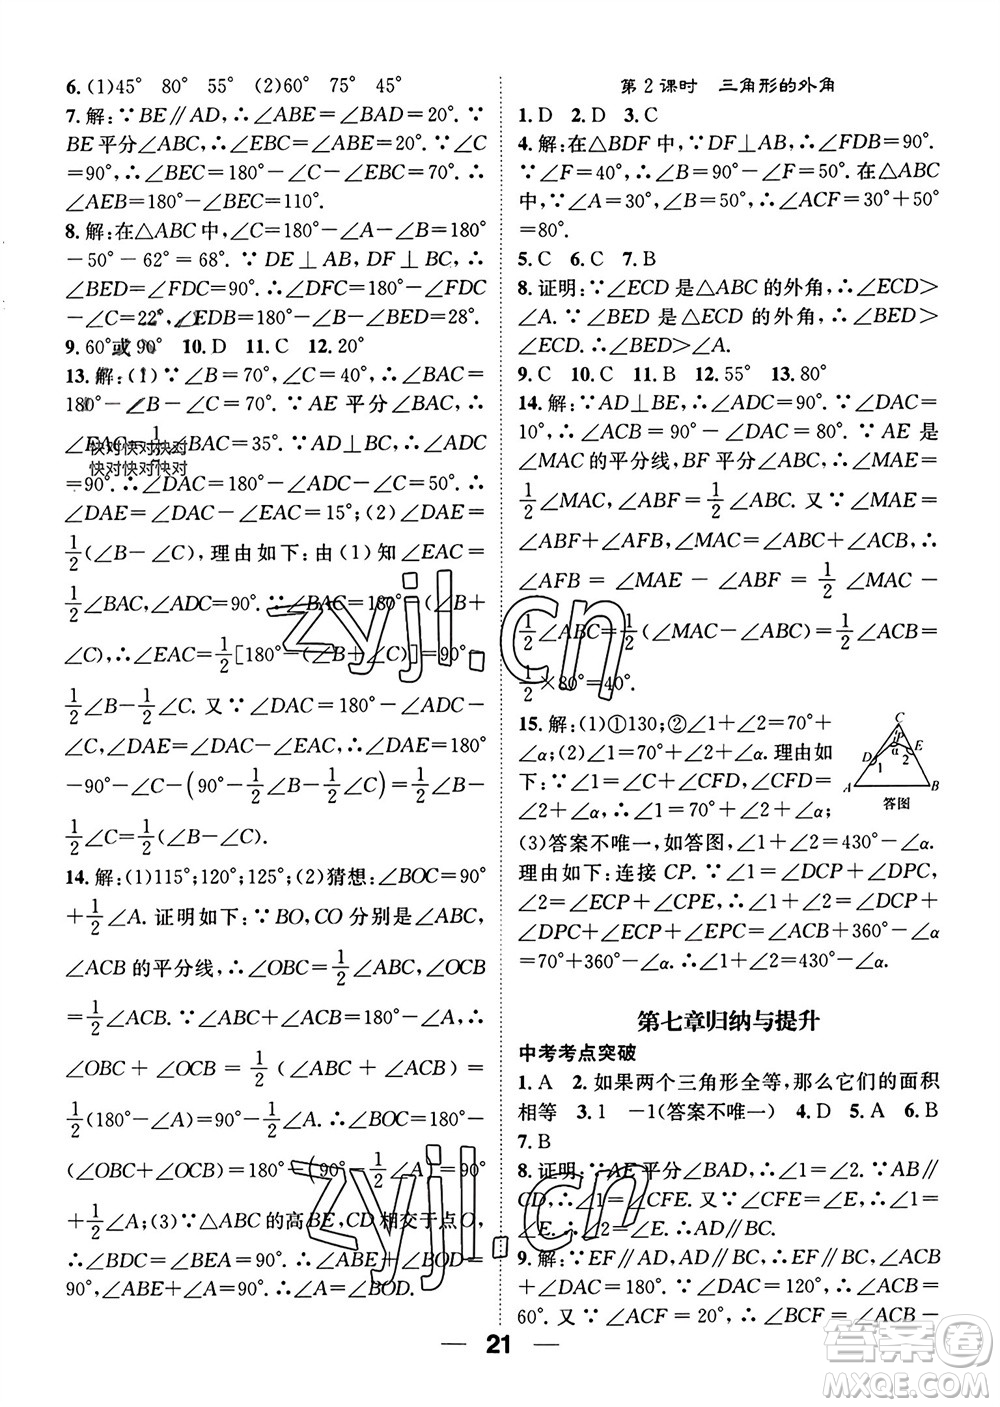 6. (1)45° 80° 55° (2)60° 75° 45°
7. 解:∵BE∥AD,∴∠ABE=∠BAD=20°.∵
BE平分∠ABC,∴∠EBC=∠ABE=20°.∵∠C
=90°,∴∠BEC=180°-∠EBC-∠C=70°.∴
∠AEB=180°-∠BEC=110°.
8. 解:在△ABC中,∠C=180°-∠A-∠B=180°
-50°-62°=68°.∵DE⊥AB,DF⊥BC,∴
∠BED=∠FDC=90°.∴∠CFD=180°-∠FDC
-∠C=22°,∠EDB=180°-∠B-∠BED=28°.
9. 60°或90° 10. D 11. C 12. 20°
13. 解:(1)∵∠B=70°,∠C=40°,∴∠BAC=
180°-∠B-∠C=70°.∵AE平分∠BAC,∴
∠EAC=1/2∠BAC=35°.∵AD⊥BC,∴∠ADC
快对快对快对
快对快对快对
=90°.∴∠DAC=180°-∠ADC-∠C=50°.∴
∠DAE=∠DAC-∠EAC=15°;(2)∠DAE=
1/2(∠B-∠C),理由如下:由(1)知∠EAC=
1/2∠BAC,∠ADC=90°.∵∠BAC=180°-(∠B+
∠C),∴∠EAC=1/2[180°-(∠B+∠C)]=90°-
1/2∠B-1/2∠C.又∵∠DAC=180°-∠ADC-
∠C,∠DAE=∠DAC-∠EAC,∴∠DAE=180°
-90°-∠C-(90°-1/2∠B-1/2∠C)=1/2∠B-
1/2∠C=1/2(∠B-∠C).
14. 解:(1)115°;120°;125°;(2)猜想:∠BOC=90°
+1/2∠A.证明如下:∵BO,CO分别是∠ABC,
∠ACB的平分线,∴∠OBC=1/2∠ABC,∠OCB
=1/2∠ACB.∵∠ABC+∠ACB=180°-∠A,∴
∠OBC+∠OCB=1/2(∠ABC+∠ACB)=
1/2(180°-∠A)=90°-1/2∠A.∴∠BOC=180°-
(∠OBC+∠OCB)=180°-(90°-1/2∠A)=90°
+1/2∠A;(3)∵△ABC的高BE,CD相交于点O,
∴∠BDC=∠BEA=90°.∴∠ABE+∠BOD=
90°,∠ABE+∠A=90°.∴∠A=∠BOD.
第2课时 三角形的外角
1. D 2. D 3. C
4. 解:在△BDF中,∵FD⊥AB,∴∠FDB=90°.
∵∠F=40°,∴∠B=90°-∠F=50°.在△ABC
中,∵∠A=30°,∠B=50°,∴∠ACF=30°+50°
=80°.
5. C 6. C 7. B
8. 证明:∵∠ECD是△ABC的外角,∴∠ECD>
∠A.∵∠BED是△ECD的外角,∴∠BED>
∠ECD.∴∠BED>∠A.
9. C 10. C 11. B 12. 55° 13. 80°
14. 解:∵AD⊥BE,∴∠ADC=90°.∵∠DAC=
10°,∴∠ACB=90°-∠DAC=80°.∵AE是
∠MAC的平分线,BF平分∠ABC,∴∠MAE=
1/2∠MAC,∠ABF=1/2∠ABC.又∵∠MAE=
∠ABF+∠AFB,∠MAC=∠ABC+∠ACB,∴
∠AFB=∠MAE-∠ABF=1/2∠MAC-
1/2∠ABC=1/2(∠MAC-∠ABC)=1/2∠ACB=
1/2×80°=40°.
15. 解:(1)①130;②∠1+∠2=70°+
∠α;(2)∠1=70°+∠2+∠α.理由如
下:∵∠1=∠C+∠CFD,∠CFD=
∠2+∠α,∴∠1=70°+∠2+∠α;
(3)答案不唯一,如答图,∠1+∠2=430°-∠α.
理由如下:连接CP.∵∠1=∠DCP+∠DPC,
∠2=∠ECP+∠CPE,∴∠1+∠2=∠DCP+
∠DPC+∠ECP+∠CPE=∠ACB+360°-∠α
=70°+360°-∠α.∴∠1+∠2=430°-∠α.
C
P
α
D
E
1
2
A
B
答图
第七章归纳与提升
中考考点突破
1. A 2. 如果两个三角形全等,那么它们的面积
相等 3. 1 -1(答案不唯一) 4. D 5. A 6. B
7. B
8. 证明:∵AE平分∠BAD,∴∠1=∠2.∵AB∥
CD,∴∠1=∠CFE.又∵∠CFE=∠E,∴∠1=
∠E.∴∠2=∠E.∴AD∥BC.
9. 解:∵EF∥AD,AD∥BC,∴EF∥BC.∴∠ACB
+∠DAC=180°.∵∠DAC=120°,∴∠ACB=
60°.又∵∠ACF=20°,∴∠BCF=∠ACB-
21
zyjl.cn
zyjl.cn
答案圈
MXQE.COM